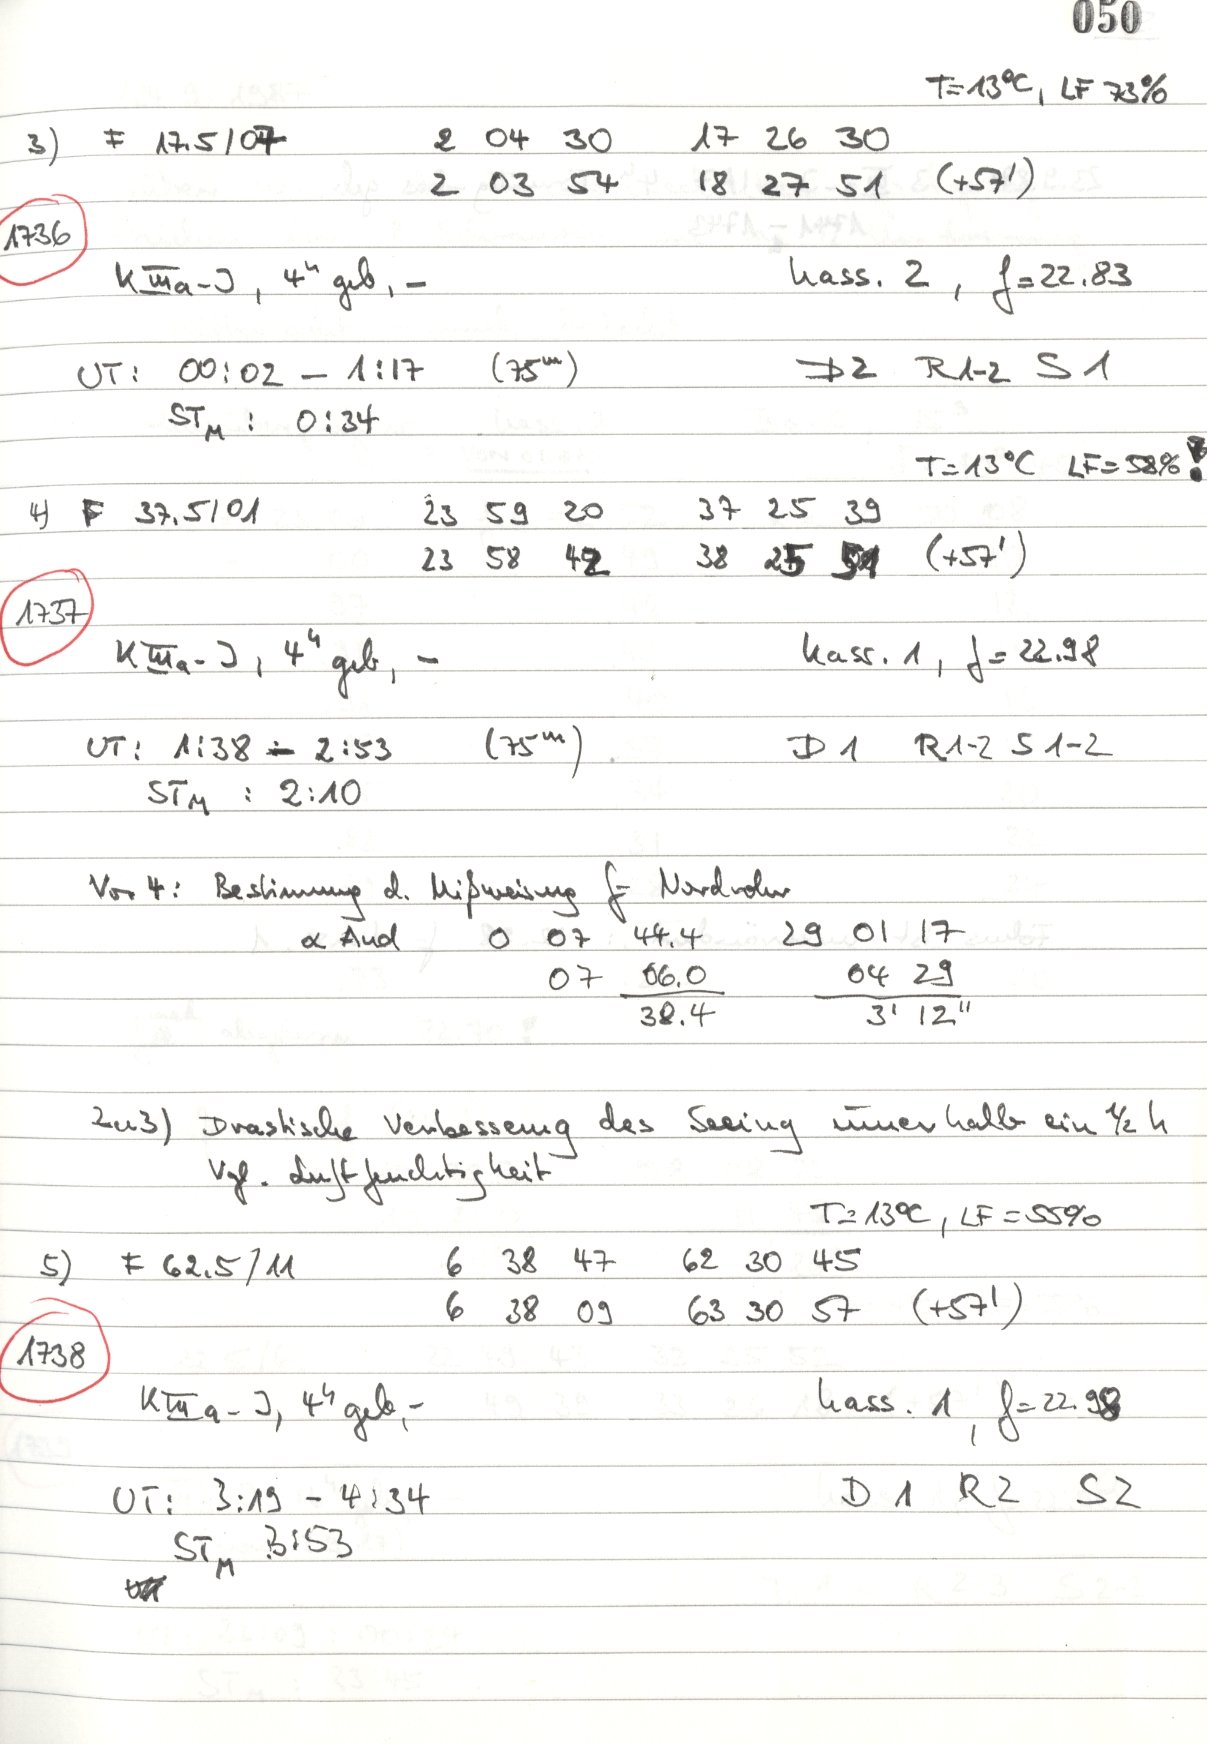 050
T=13°C, LF 73%
3) F 17.5/07 2 04 30 17 26 30
2 03 54 18 27 51 (+57')
1736
KIIIa-J, 4h geb, - Kass. 2, f=22.83
UT: 00:02 - 1:17 (75m) D2 R1-2 S1
STM: 0:34
T=13°C LF=58%!
4) F 37.5/01 23 59 20 37 25 39
23 58 42 38 25 51 (+57')
1737
KIIIa-J, 4h geb, - Kass. 1, f=22.98
UT: 1:38 - 2:53 (75m) D1 R1-2 S1-2
STM: 2:10
Vor 4: Bestimmung d. Mißweisung f= Nordrohr
α And 0 07 44.4 29 01 17
07 06.0 04 29
38.4 3' 12"
Zu 3) Drastische Verbesserung des Seeing innerhalb ein 1/2 h
Vgl. Luftfeuchtigkeit
T=13°C, LF=55%
5) F 62.5/11 6 38 47 62 30 45
6 38 09 63 30 57 (+57')
1738
KIIIa-J, 4h geb, - Kass. 1, f=22.98
UT: 3:19 - 4:34 D1 R2 S2
STM 3:53